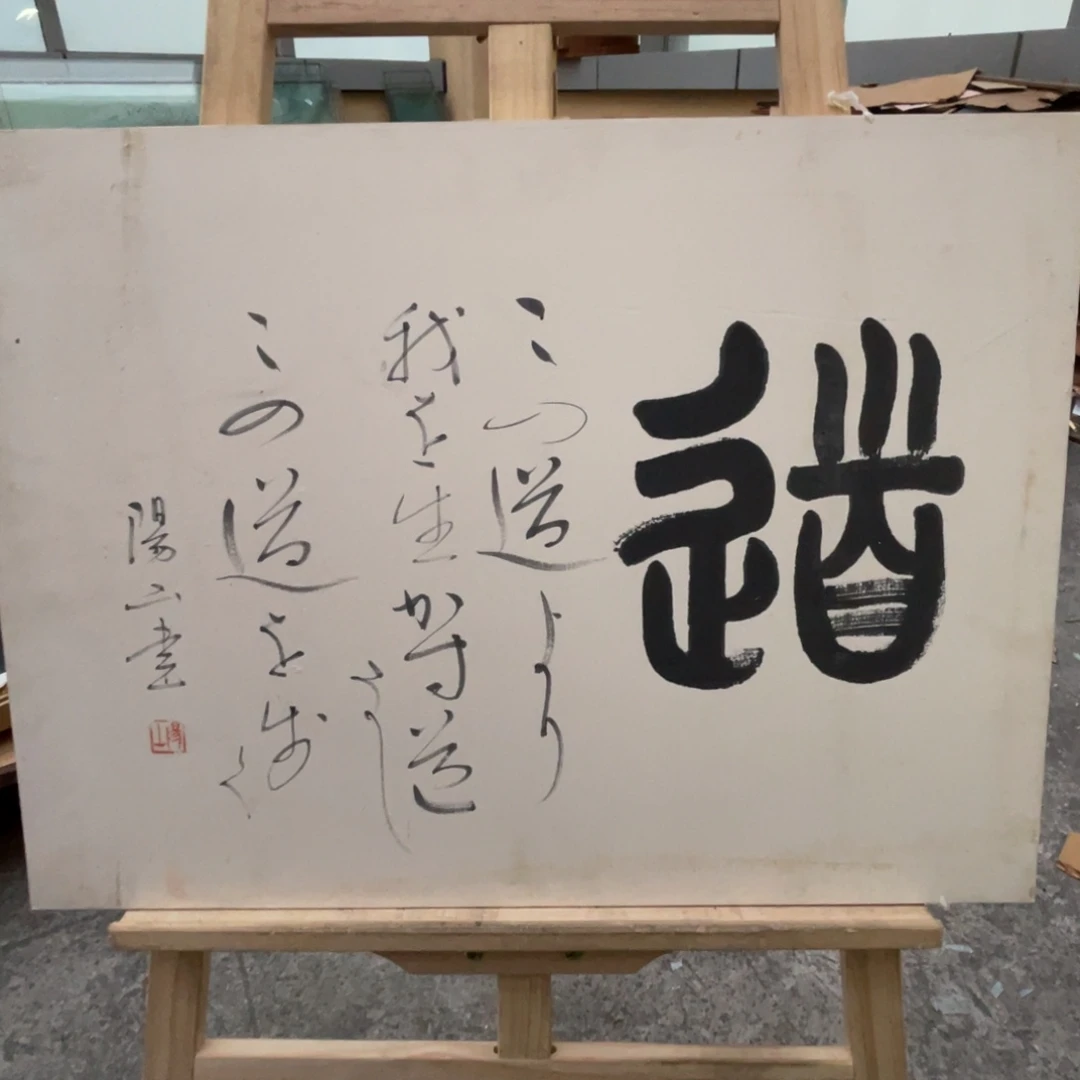 道
この道より
我を生かす道
なし
この道を歩
く
陽山書